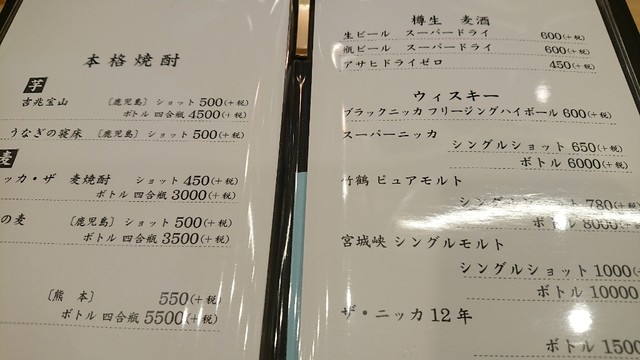 本格焼酎
芋
吉兆宝山 〔鹿児島〕 ショット 500(+税)
ボトル 四合瓶 4500(+税)
うなぎの寝床 〔鹿児島〕 ショット 500(+税)
麦
ッカ・ザ 麦焼酎 ショット 450(+税)
ボトル 四合瓶 3000(+税)
の麦 〔鹿児島〕 ショット 500(+税)
ボトル 四合瓶 3500(+税)
〔熊 本〕 550(+税)
ボトル 四合瓶 5500(+税)
樽生 麦酒
生ビール スーパードライ 600(+税)
瓶ビール スーパードライ 600(+税)
アサヒドライゼロ 450(+税)
ウィスキー
ブラックニッカ フリージングハイボール 600(+税)
スーパーニッカ
シングルショット 650(+税)
ボトル 6000(+税)
竹鶴 ピュアモルト
シングルショット 780(+税)
ボトル 8000(+税)
宮城峡 シングルモルト
シングルショット 1000(
ボトル 10000
ザ・ニッカ 12年
ボトル 1500